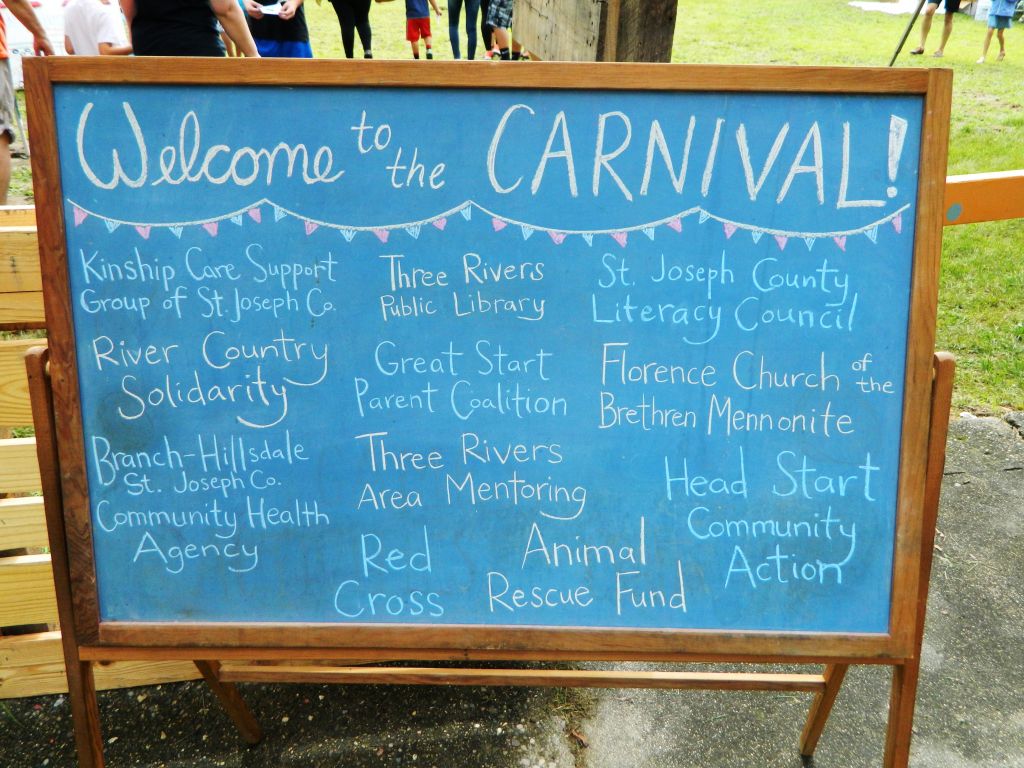 Welcome to the CARNIVAL!
Kinship Care Support
Group of St. Joseph Co.
River Country
Solidarity
Branch-Hillsdale
St. Joseph Co.
Community Health
Agency
Three Rivers
Public Library
Great Start
Parent Coalition
Three Rivers
Area Mentoring
Red
Cross
Animal
Rescue Fund
St. Joseph County
Literacy Council
Florence Church of the
Brethren Mennonite
Head Start
Community
Action